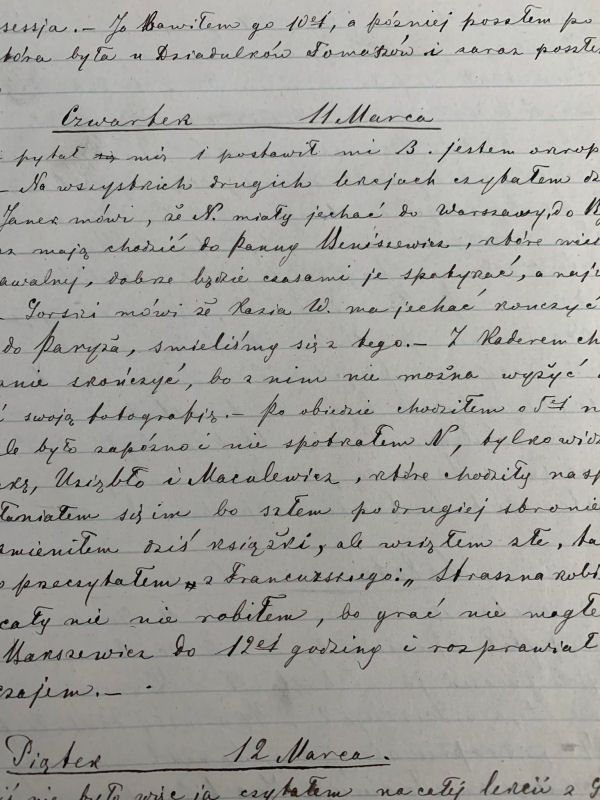 sessja. — Ja Bawiłem go 10ej, a później poszłem po
która była u Dziadulków Tomaszów i zaraz poszłe
Czwartek 11 Marca
pytał mię i postawił mi B. jestem okrop
— Na wszystkich drugich lekcjach czytałem
Janek mówi, że N. miały jechać do Warszawy, do
mają chodzić do Panny Weniszewicz, które
awalnej, dobrze będzie czasami je spotykać, a naj
— Gorski mówi że Kazia W. ma jechać kończyć
do Paryża, smieliśmy się z tego. — Z Kaderem ch
anie skończyć, bo z nim nie można wyżyć
swoją fotografię. — Po obiedzie chodziłem o 5ej n
le było zapóżno i nie spotkałem N, tylko widz
kę, Uziębło i Maculewicz, które chodziły na sp
łaniałem się im bo szłem po drugiej stronie
mieniłem dziś książki, ale wziąłem złe, ta
przeczytałem „z Francuzskiego:„ Straszna kobi
cały nie nie robiłem, bo grać nie mogłe
Warszewicz do 12ej godziny i rozprawiał
czajem. —
Piątek 12 Marca.
nie było więc ja czytałem na całej lekcii z